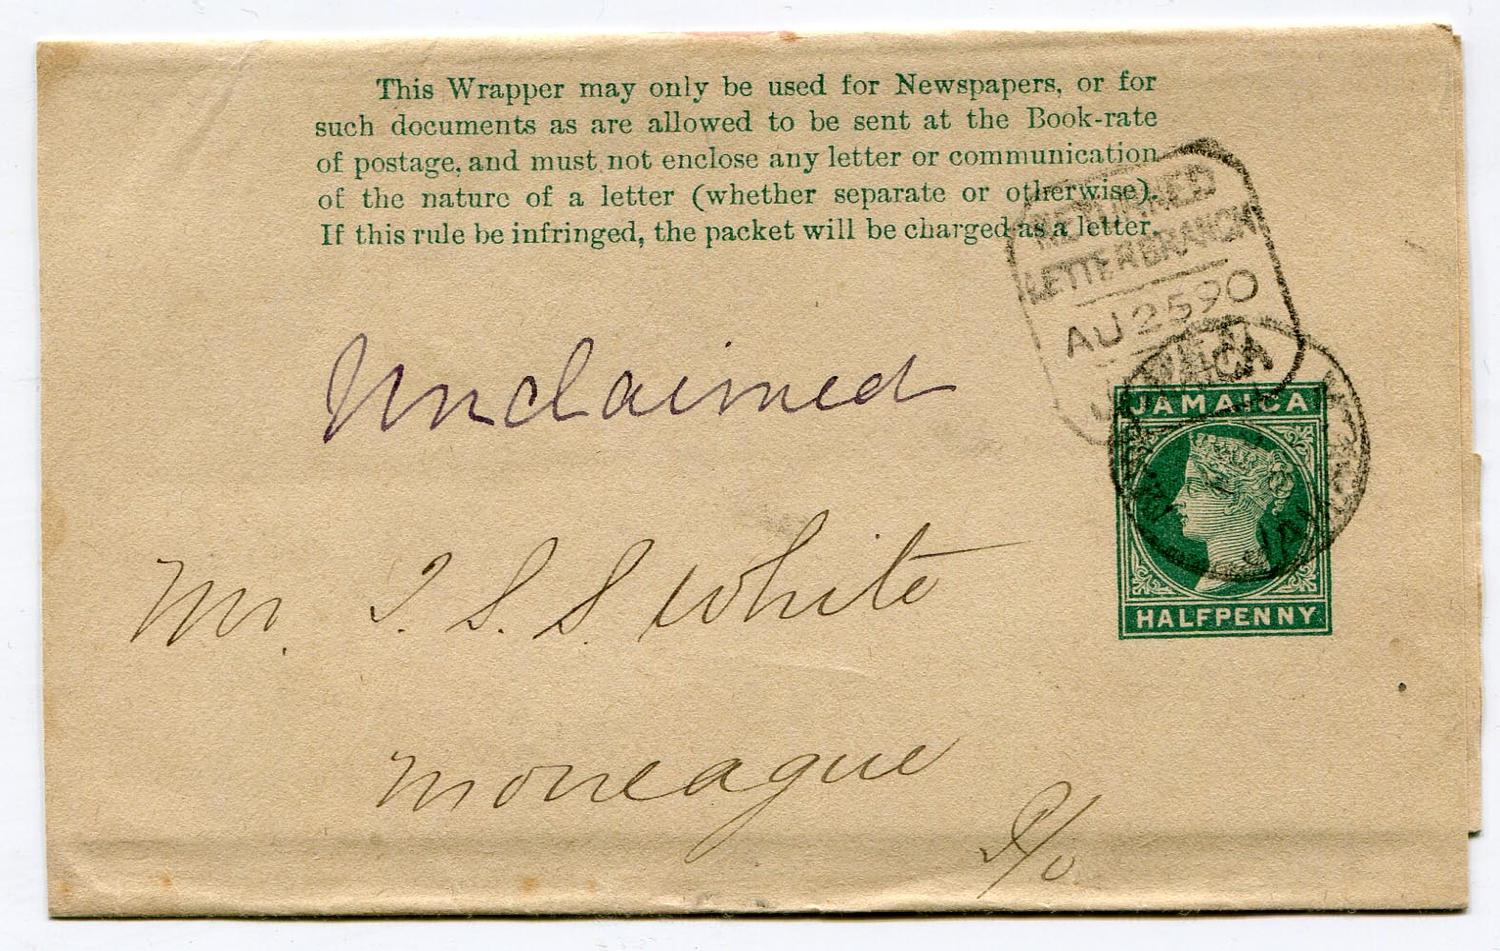 This Wrapper may only be used for Newspapers, or for
such documents as are allowed to be sent at the Book-rate
of postage, and must not enclose any letter or communication
of the nature of a letter (whether separate or otherwise).
If this rule be infringed, the packet will be charged as a letter.
RETURNED
LETTER BRANCH
AU 25 90
JAMAICA
HALFPENNY
Unclaimed
Mr. T. S. S. White
Moneague
P/o